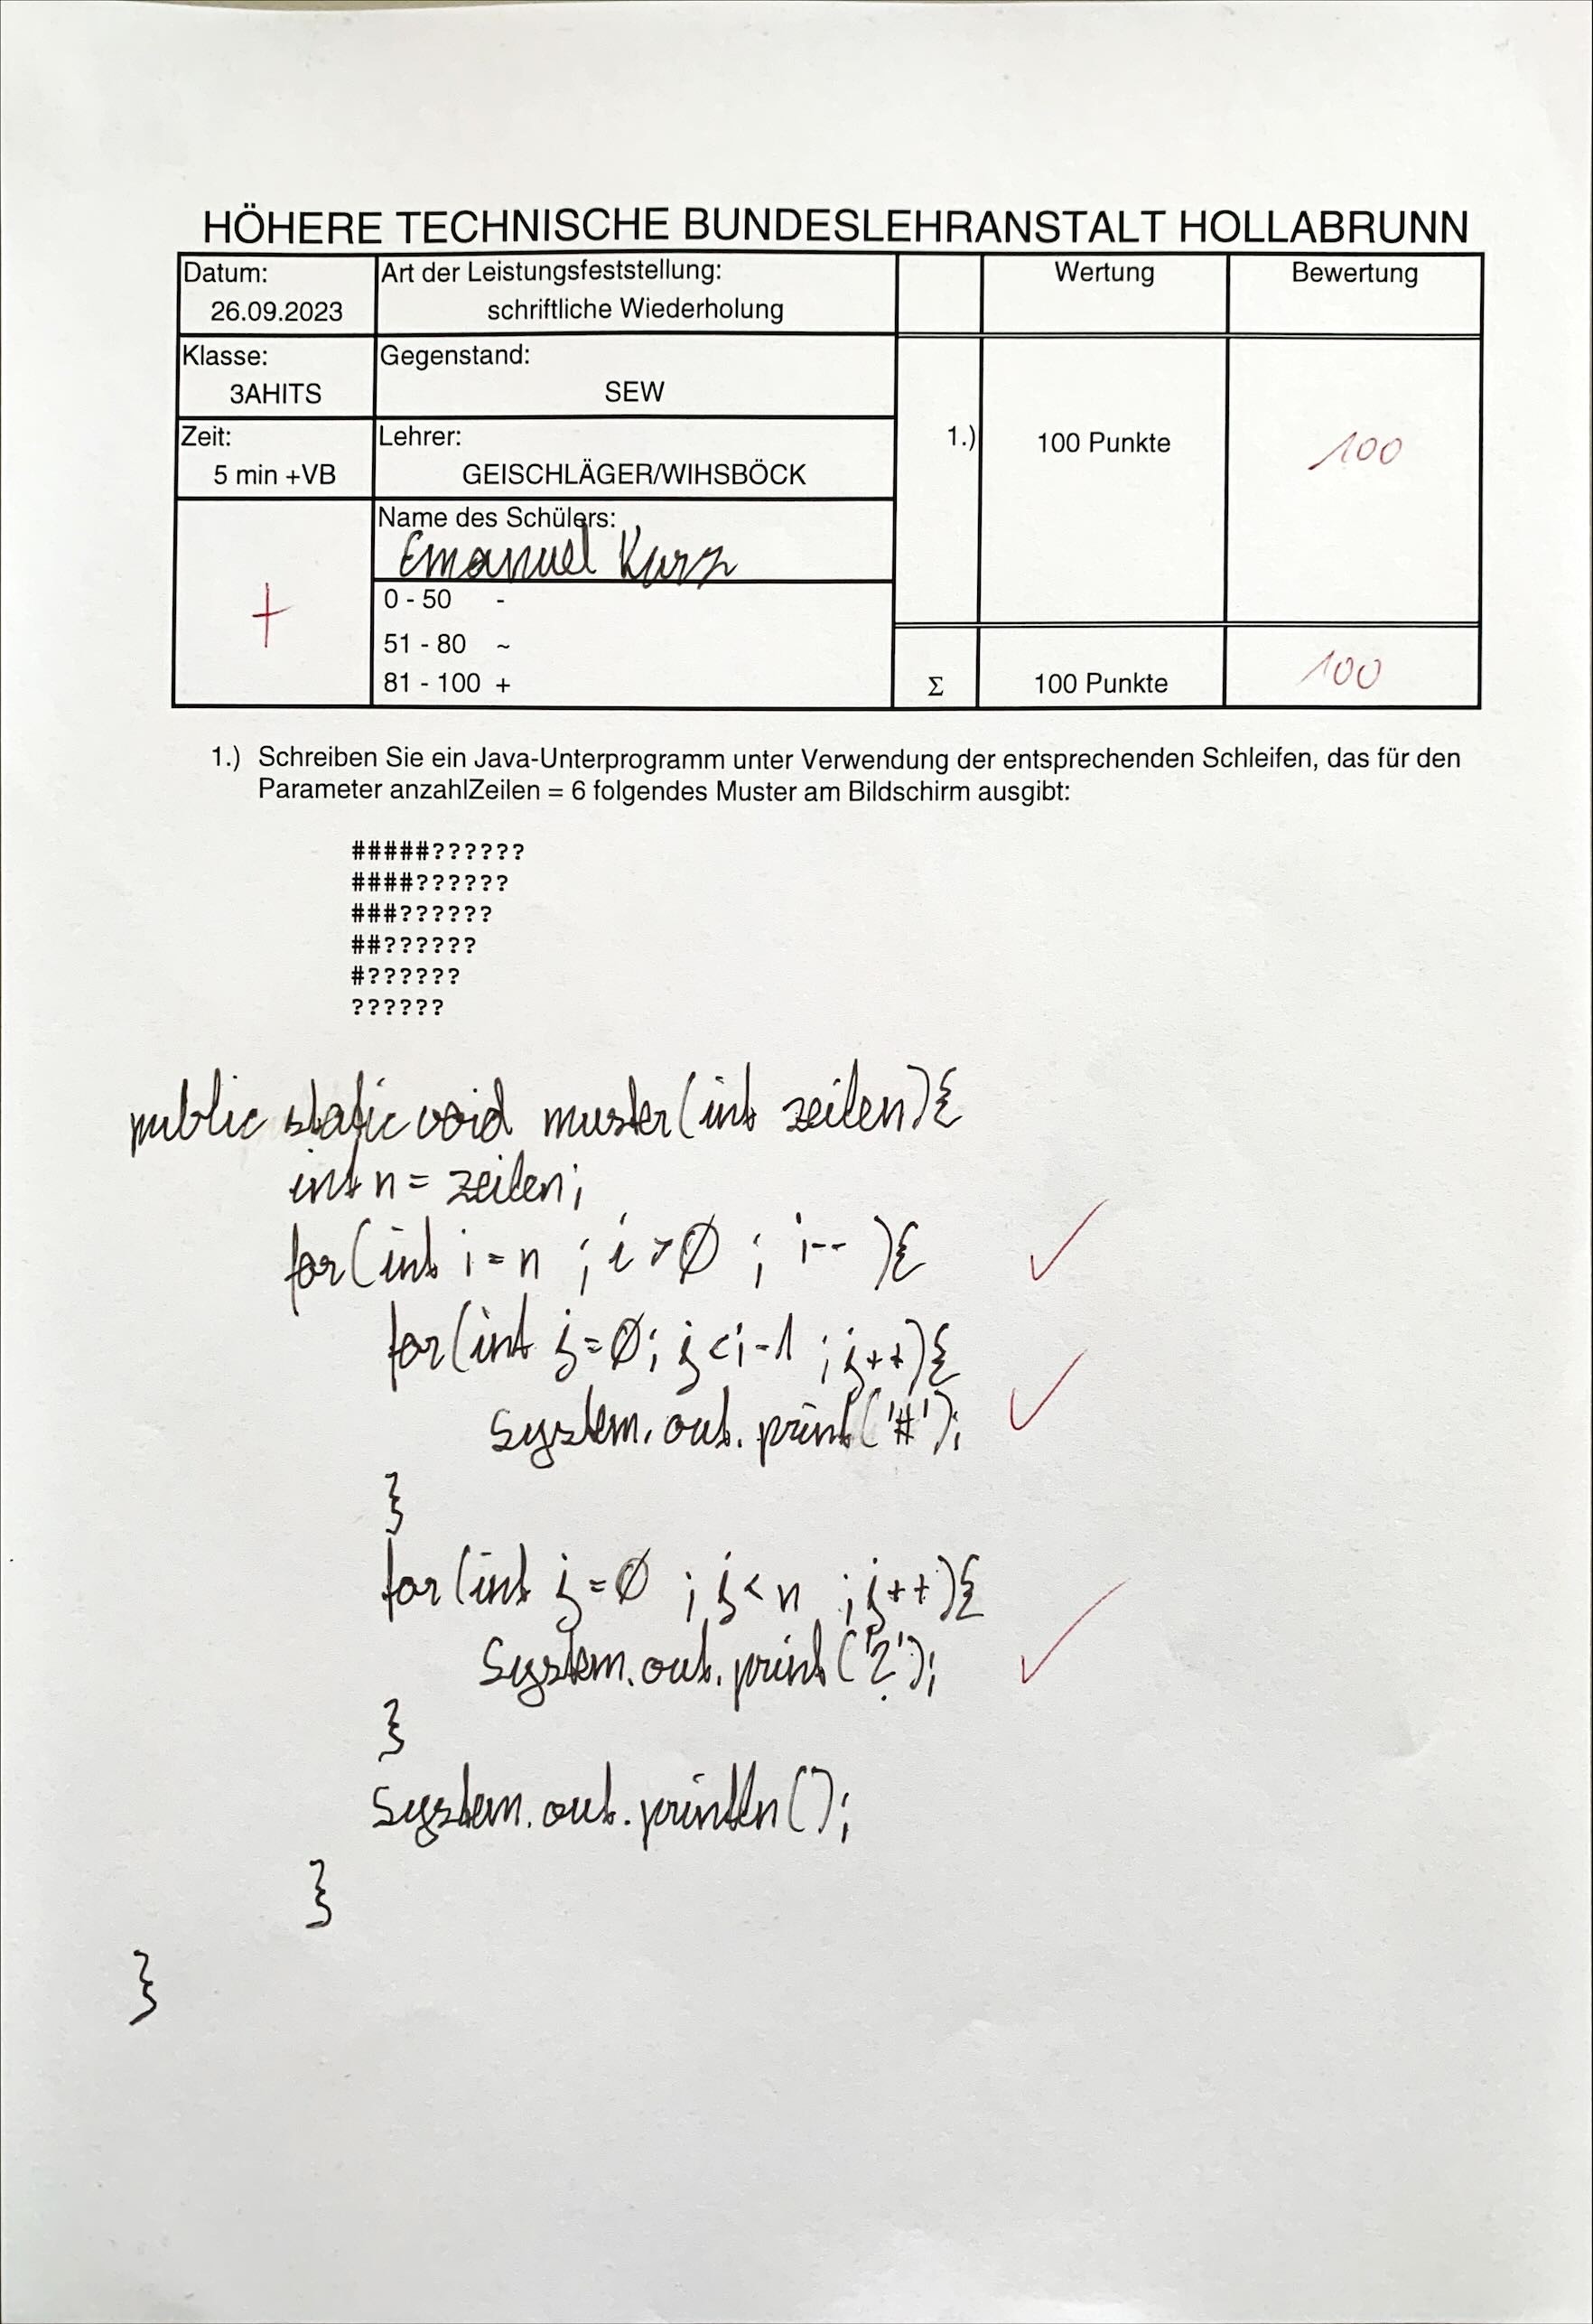 HÖHERE TECHNISCHE BUNDESLEHRANSTALT HOLLABRUNN
Datum:
26.09.2023
Art der Leistungsfeststellung:
schriftliche Wiederholung
Wertung
Bewertung
Klasse:
3AHITS
Gegenstand:
SEW
Zeit:
5 min +VB
Lehrer:
GEISCHLÄGER/WIHSBÖCK
1.)
100 Punkte
100
Name des Schülers:
Emanuel Kurz
+
0 - 50 -
51 - 80 ~
81 - 100 +
Σ
100 Punkte
100
1.) Schreiben Sie ein Java-Unterprogramm unter Verwendung der entsprechenden Schleifen, das für den
Parameter anzahlZeilen = 6 folgendes Muster am Bildschirm ausgibt:
#####??????
####??????
###??????
##??????
#??????
??????
public static void muster(int zeilen){
int n = zeilen;
for(int i = n ; i > 0 ; i-- ){
for(int j = 0; j < i-1 ; j++){
System.out.print('#');
}
for(int j = 0 ; j < n ; j++){
System.out.print('?');
}
System.out.println();
}
}